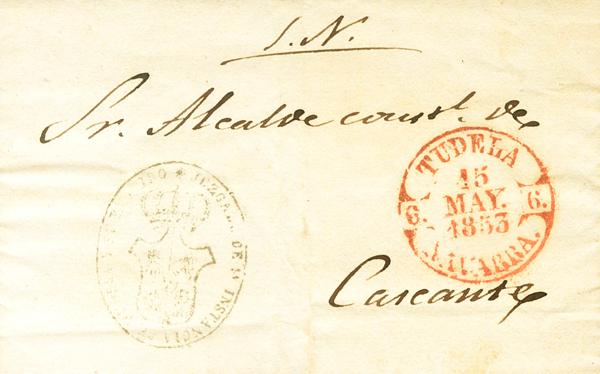 S. N.
Sr. Alcalde const.l de
Cascante
TUDELA
15
MAY.
1853
6. 6.
NAVARRA.
JUZGADO DE 1ª INSTANCIA